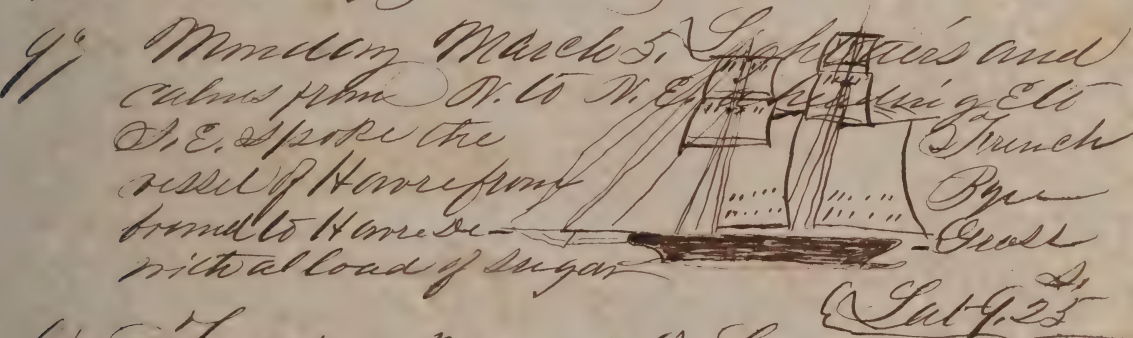 9" Monday March 5. Light airs and
calms from N. to N. E. heading E to
S. E. spoke the French
vessel of Havre from
bound to Havre De Grass
with a load of sugar
S.
Lat 9.25